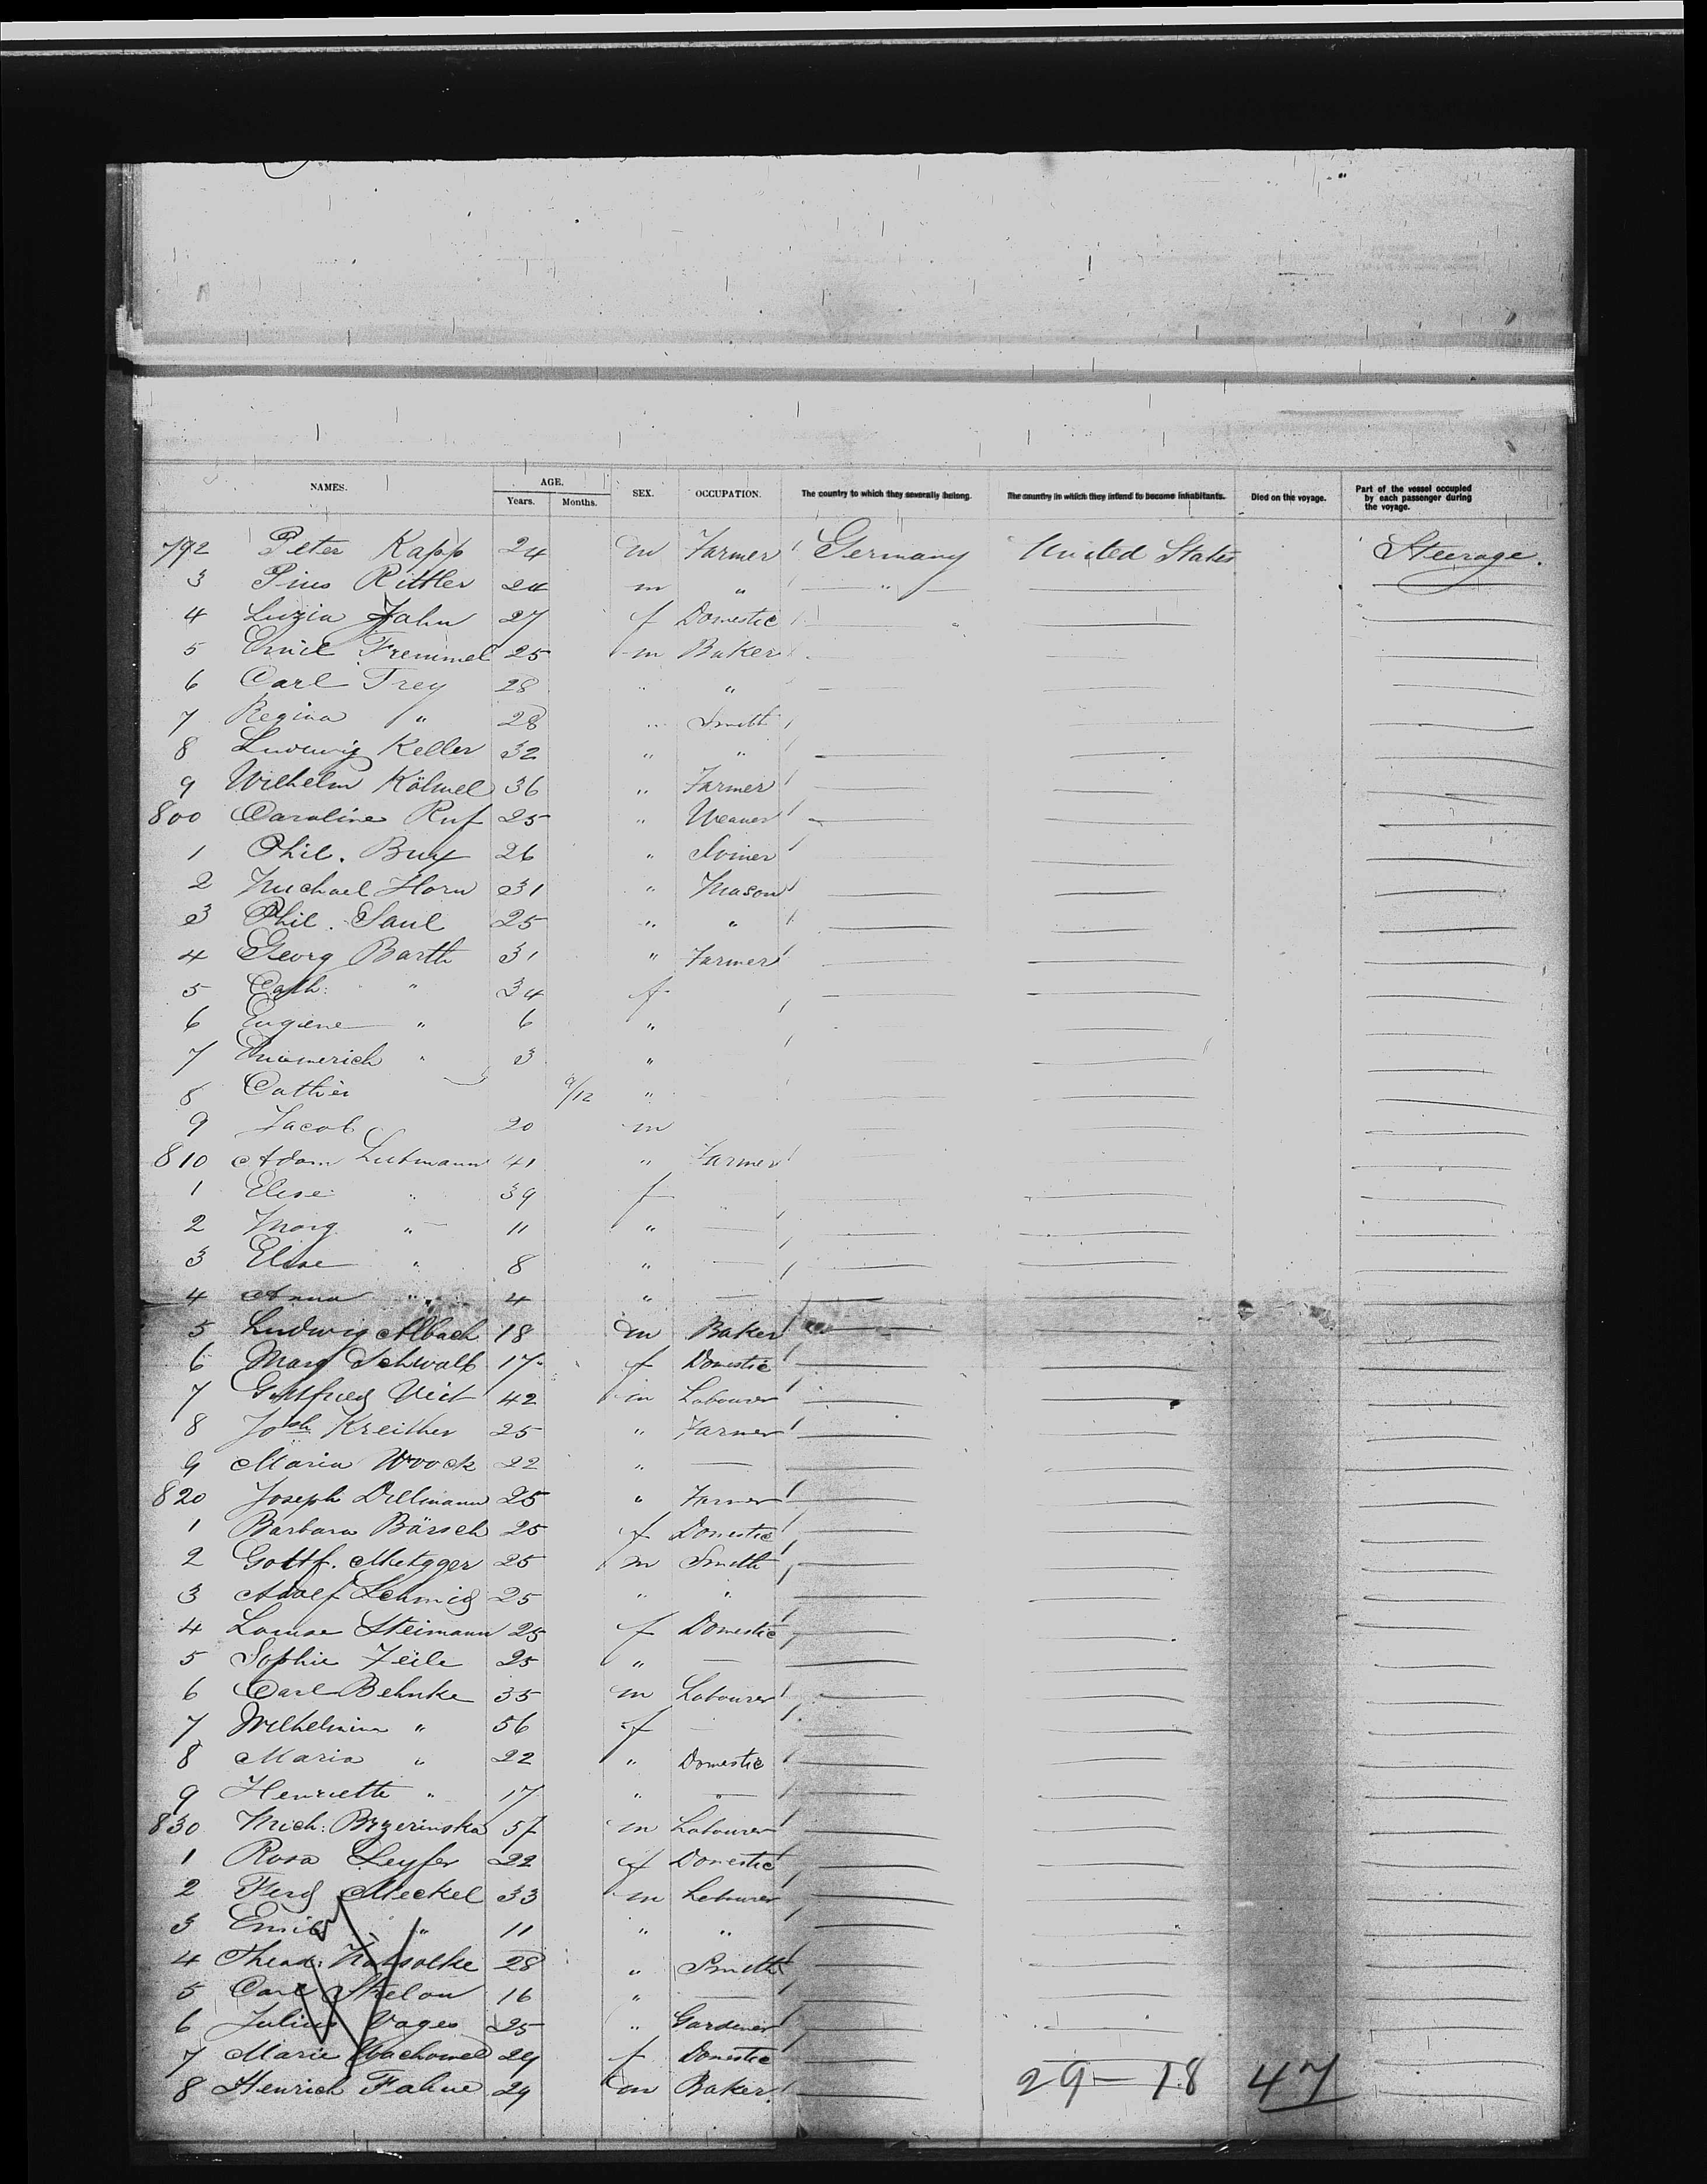 NAMES. AGE. SEX. OCCUPATION. The country to which they severally belong. The country in which they intend to become inhabitants. Died on the voyage. Part of the vessel occupied by each passenger during the voyage.
Years. Months.
792 Peter Kapp 24 m Farmer Germany United States Steerage.
3 Pius Rittler 24 m "
4 Luzia Jahn 27 f Domestic
5 Emil Fremmel 25 m Baker
6 Carl Frey 28 " "
7 Regina " 28 " Smith
8 Ludwig Keller 32 " "
9 Wilhelm Kölmel 36 " Farmer
800 Caroline Ruf 25 " Weaver
1 Phil. 26 " Joiner
2 Michael Horn 31 " Mason
3 Phil. Saul 25 " "
4 Georg Barth 31 " Farmer
5 Cath: " 34 f
6 Eugiene " 6 "
7 " 3 "
8 9/12 "
9 Jacob 20 m
810 Adam 41 " Farmer
1 Elise " 39 f
2 Marg " 11 "
3 Elise " 8 "
4 Anna " 4 "
5 Ludwig Albach 18 m Baker
6 Marg Schwalb 17 f Domestic
7 Gottfried Veit 42 m Labourer
8 Josh Kreither 25 " Farmer
9 Maria Woock 22 "
820 Joseph Dillmann 25 " Farmer
1 Barbara Bärsch 25 f Domestic
2 Gottf. Metzger 25 m Smith
3 Adolf Schmid 25 " "
4 Louise Steimann 25 f Domestic
5 Sophie Zeile 25 "
6 Carl Behnke 35 m Labourer
7 Wilhelmina " 56 f
8 Maria " 22 " Domestic
9 Henriette " 17 "
830 Mich: 57 m Labourer
1 Rosa Leyfer 22 f Domestic
2 Ferd Meckel 33 m Labourer
3 Emil " 11 " "
4 Theod: 28 " Smith
5 Carl 16 "
6 Julius Vages 25 " Gardener
7 Marie 24 f Domestic
8 Henrich Fahne 29 m Baker
29 – 18 47